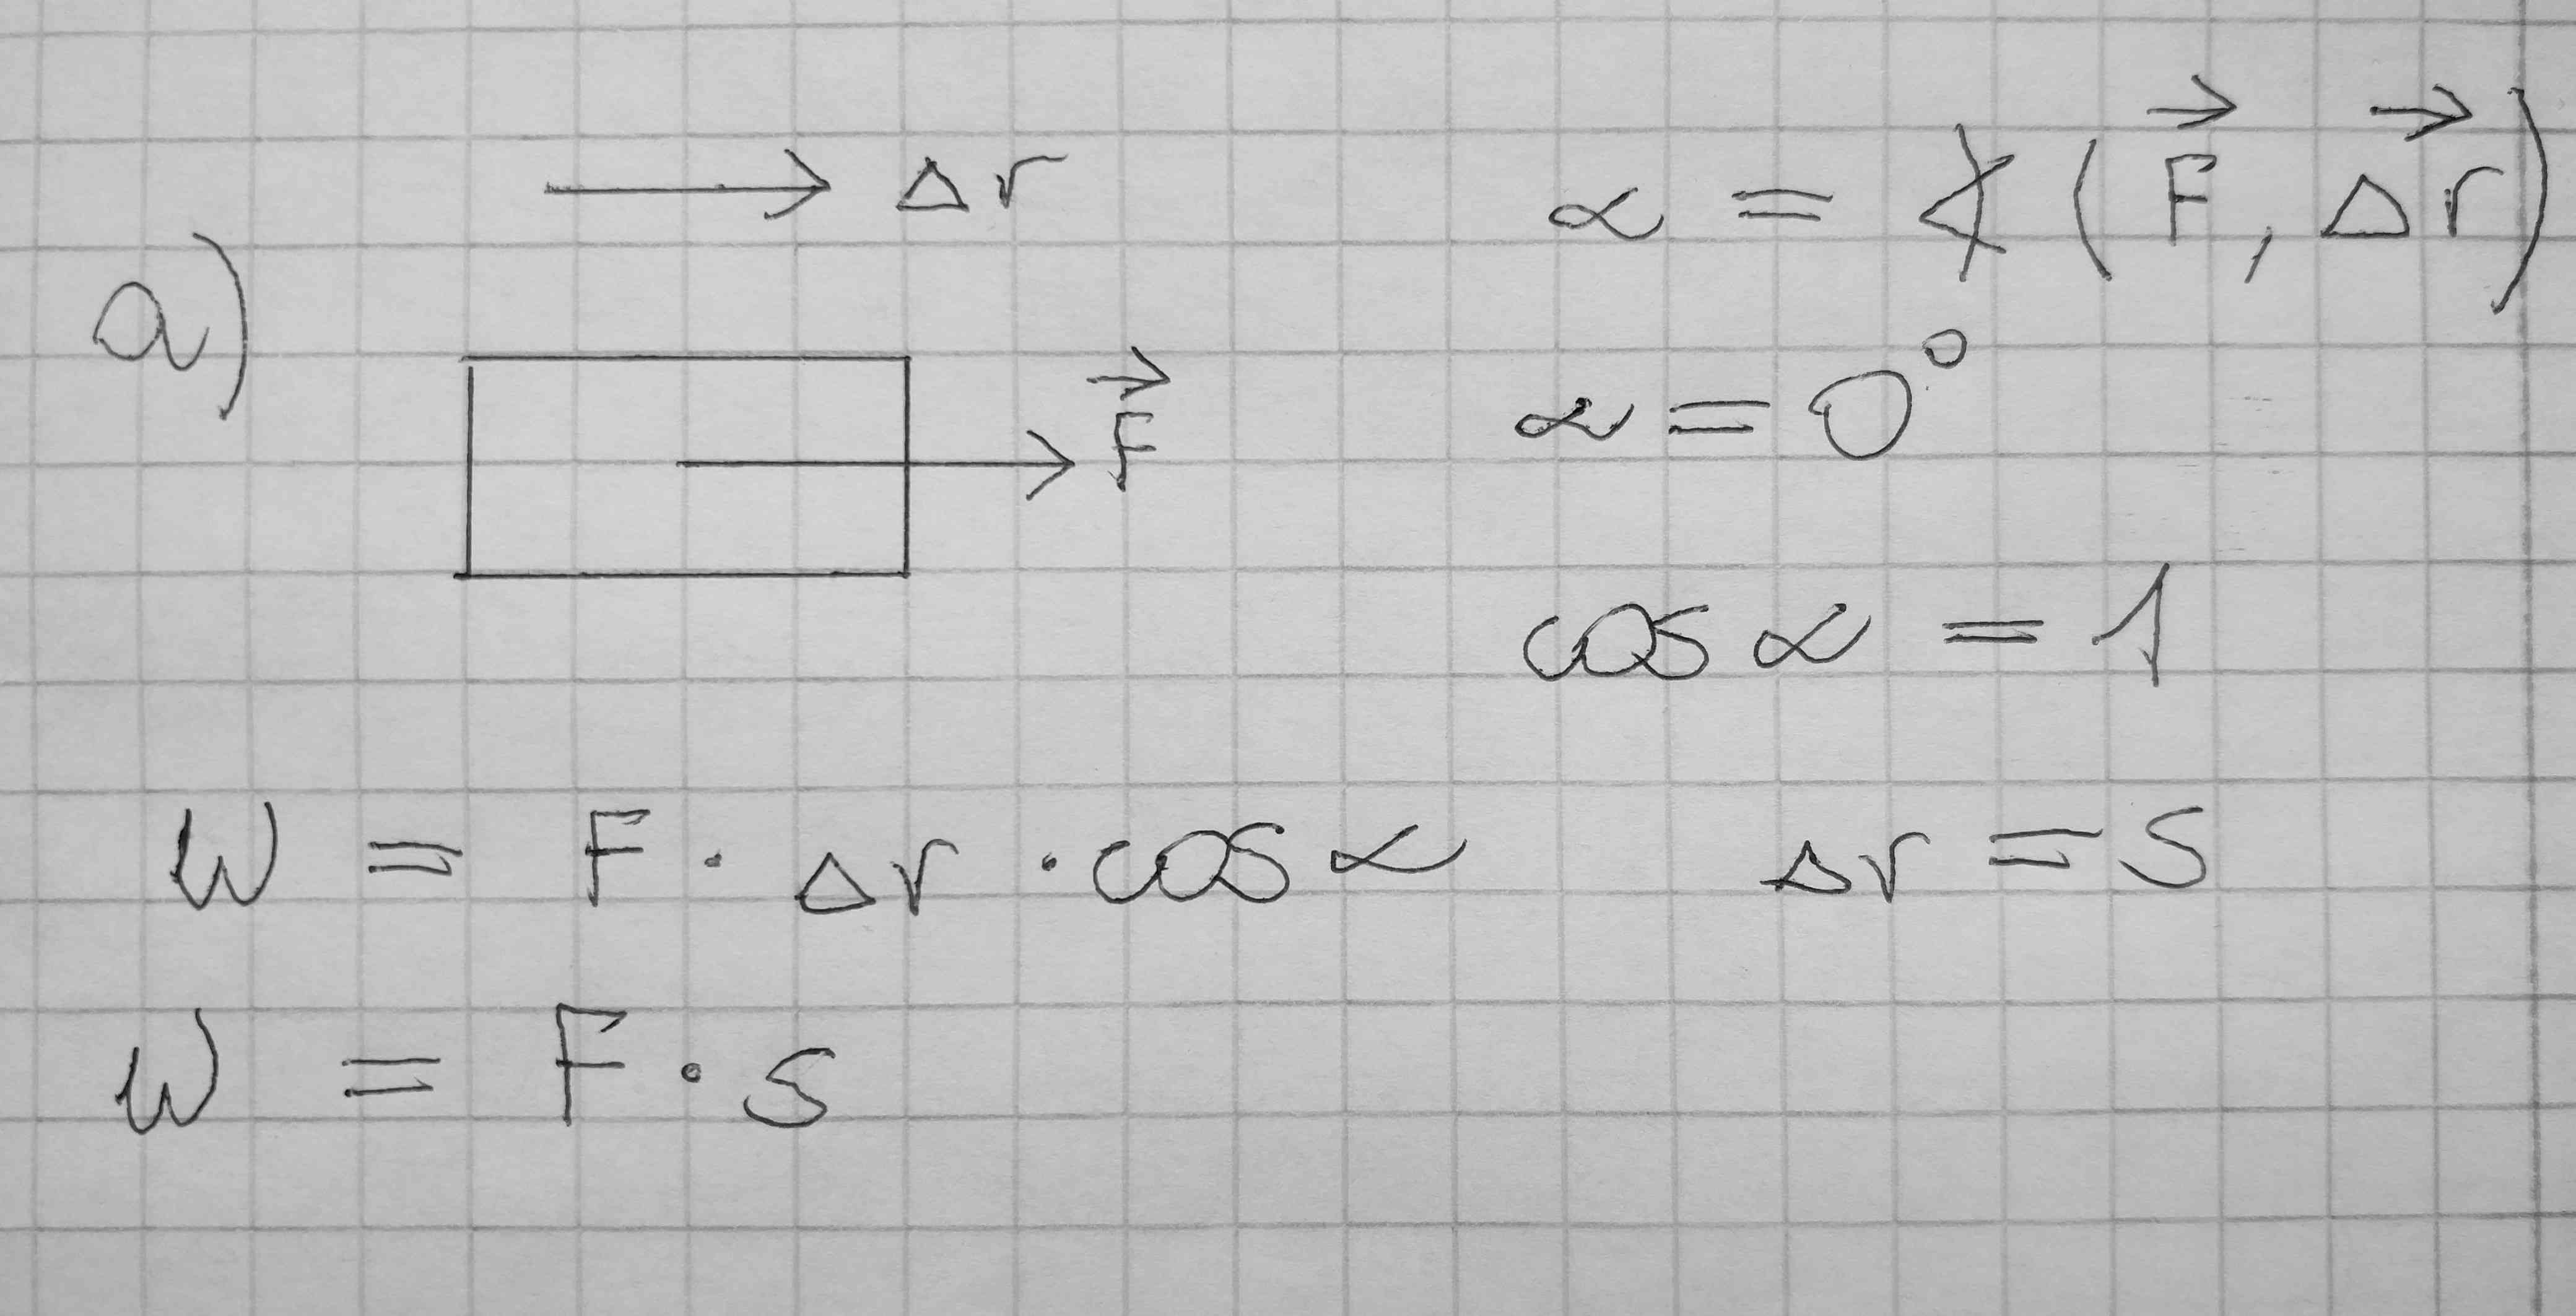 Δr
α = ∢ (F⃗, Δr⃗)
a)
F⃗
α = 0°
cos α = 1
W = F · Δr · cos α
Δr = s
W = F · s